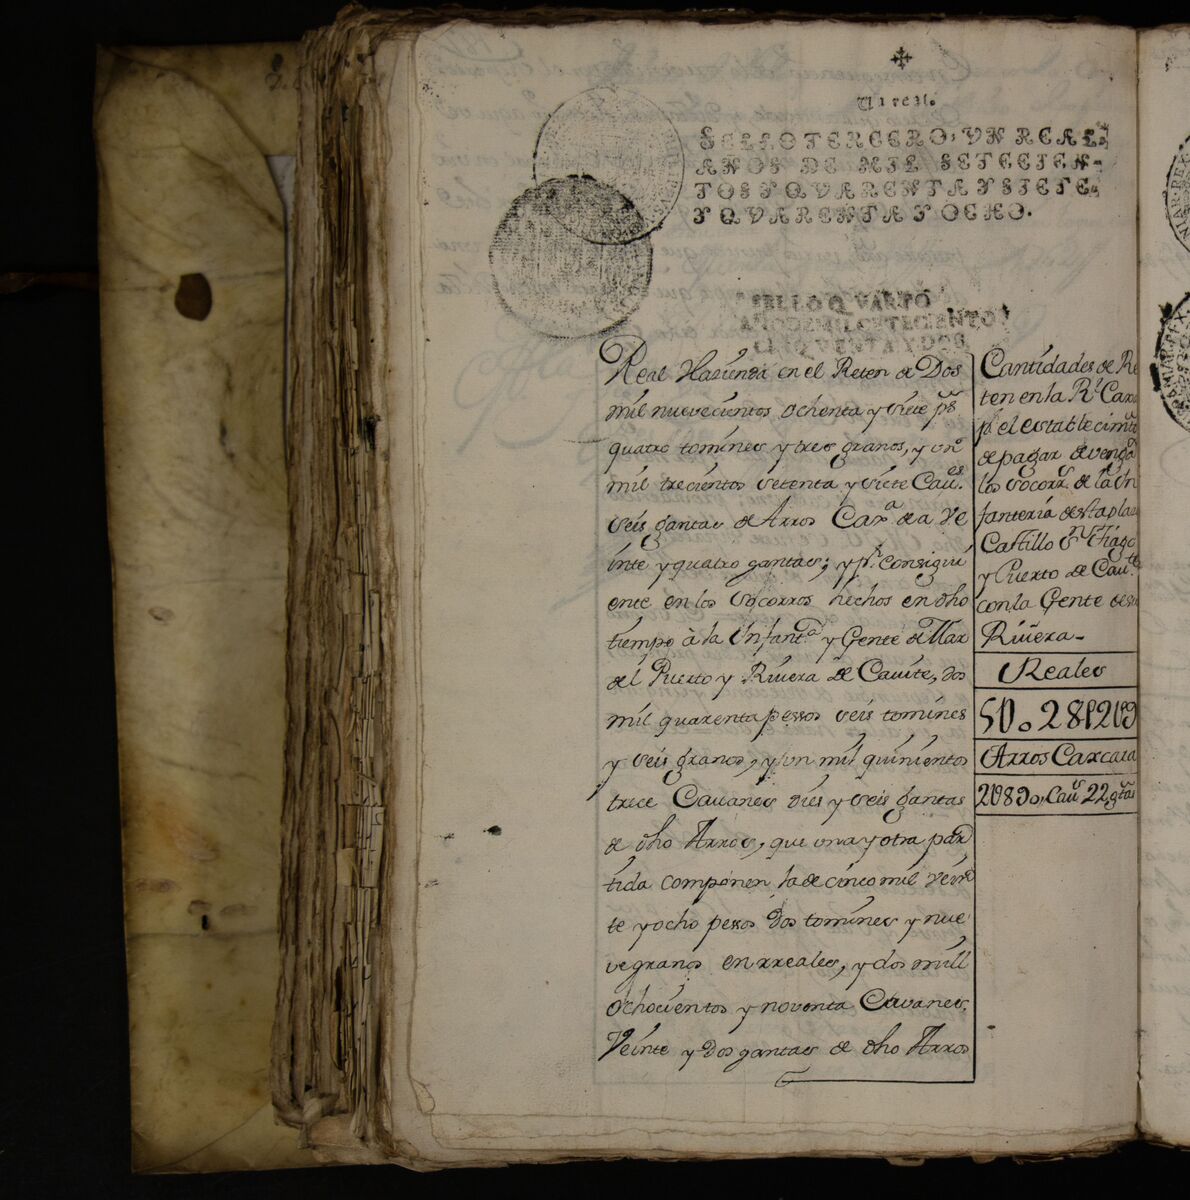 Un real.
SELLO TERCERO, VN REAL
AÑOS DE MIL SETECIEN-
TOS Y QVARENTA Y SIETE
Y QVARENTA Y OCHO.
SELLO QVARTO
AÑO DE MIL SETECIENTO
CINQVENTA Y DOS
Real Hazienda en el Reten de Dos
mil nuevecientos ochenta y siete ps.
quatro tomines y tres granos, y un
mil trecientos setenta y siete Caues.
seis gantas de Arros Caxa. de a Ve
inte y quatro gantas; y pr. consigui
ente en los Socorros hechos en dho
tiempo à la Infanta. y Gente de Mar
del Puerto y Rivera de Cauite, dos
mil quarenta pessos seis tomines
y seis granos, y un mil quinientos
trece Cauanes dies y seis gantas
de dho Arros, que una y otra par
tida componen la de cinco mil vein
te y ocho pessos dos tomines y nue
ve granos en rreales, y dos mill
ochocientos y noventa Cavanes
Veinte y dos gantas de dho Arros
Cantidades de Re
ten en la Rl. Caxa
pr. el establecimto
de pagar devenga
los socorrs. de la In
fanteria de esta plaza
Castillo Sntiago
y Puerto de Caute.
con la Gente de su
Rivera-
Reales
5U.028p2t9g
Arros Caxcara
2U890, Caus. 22 gtas